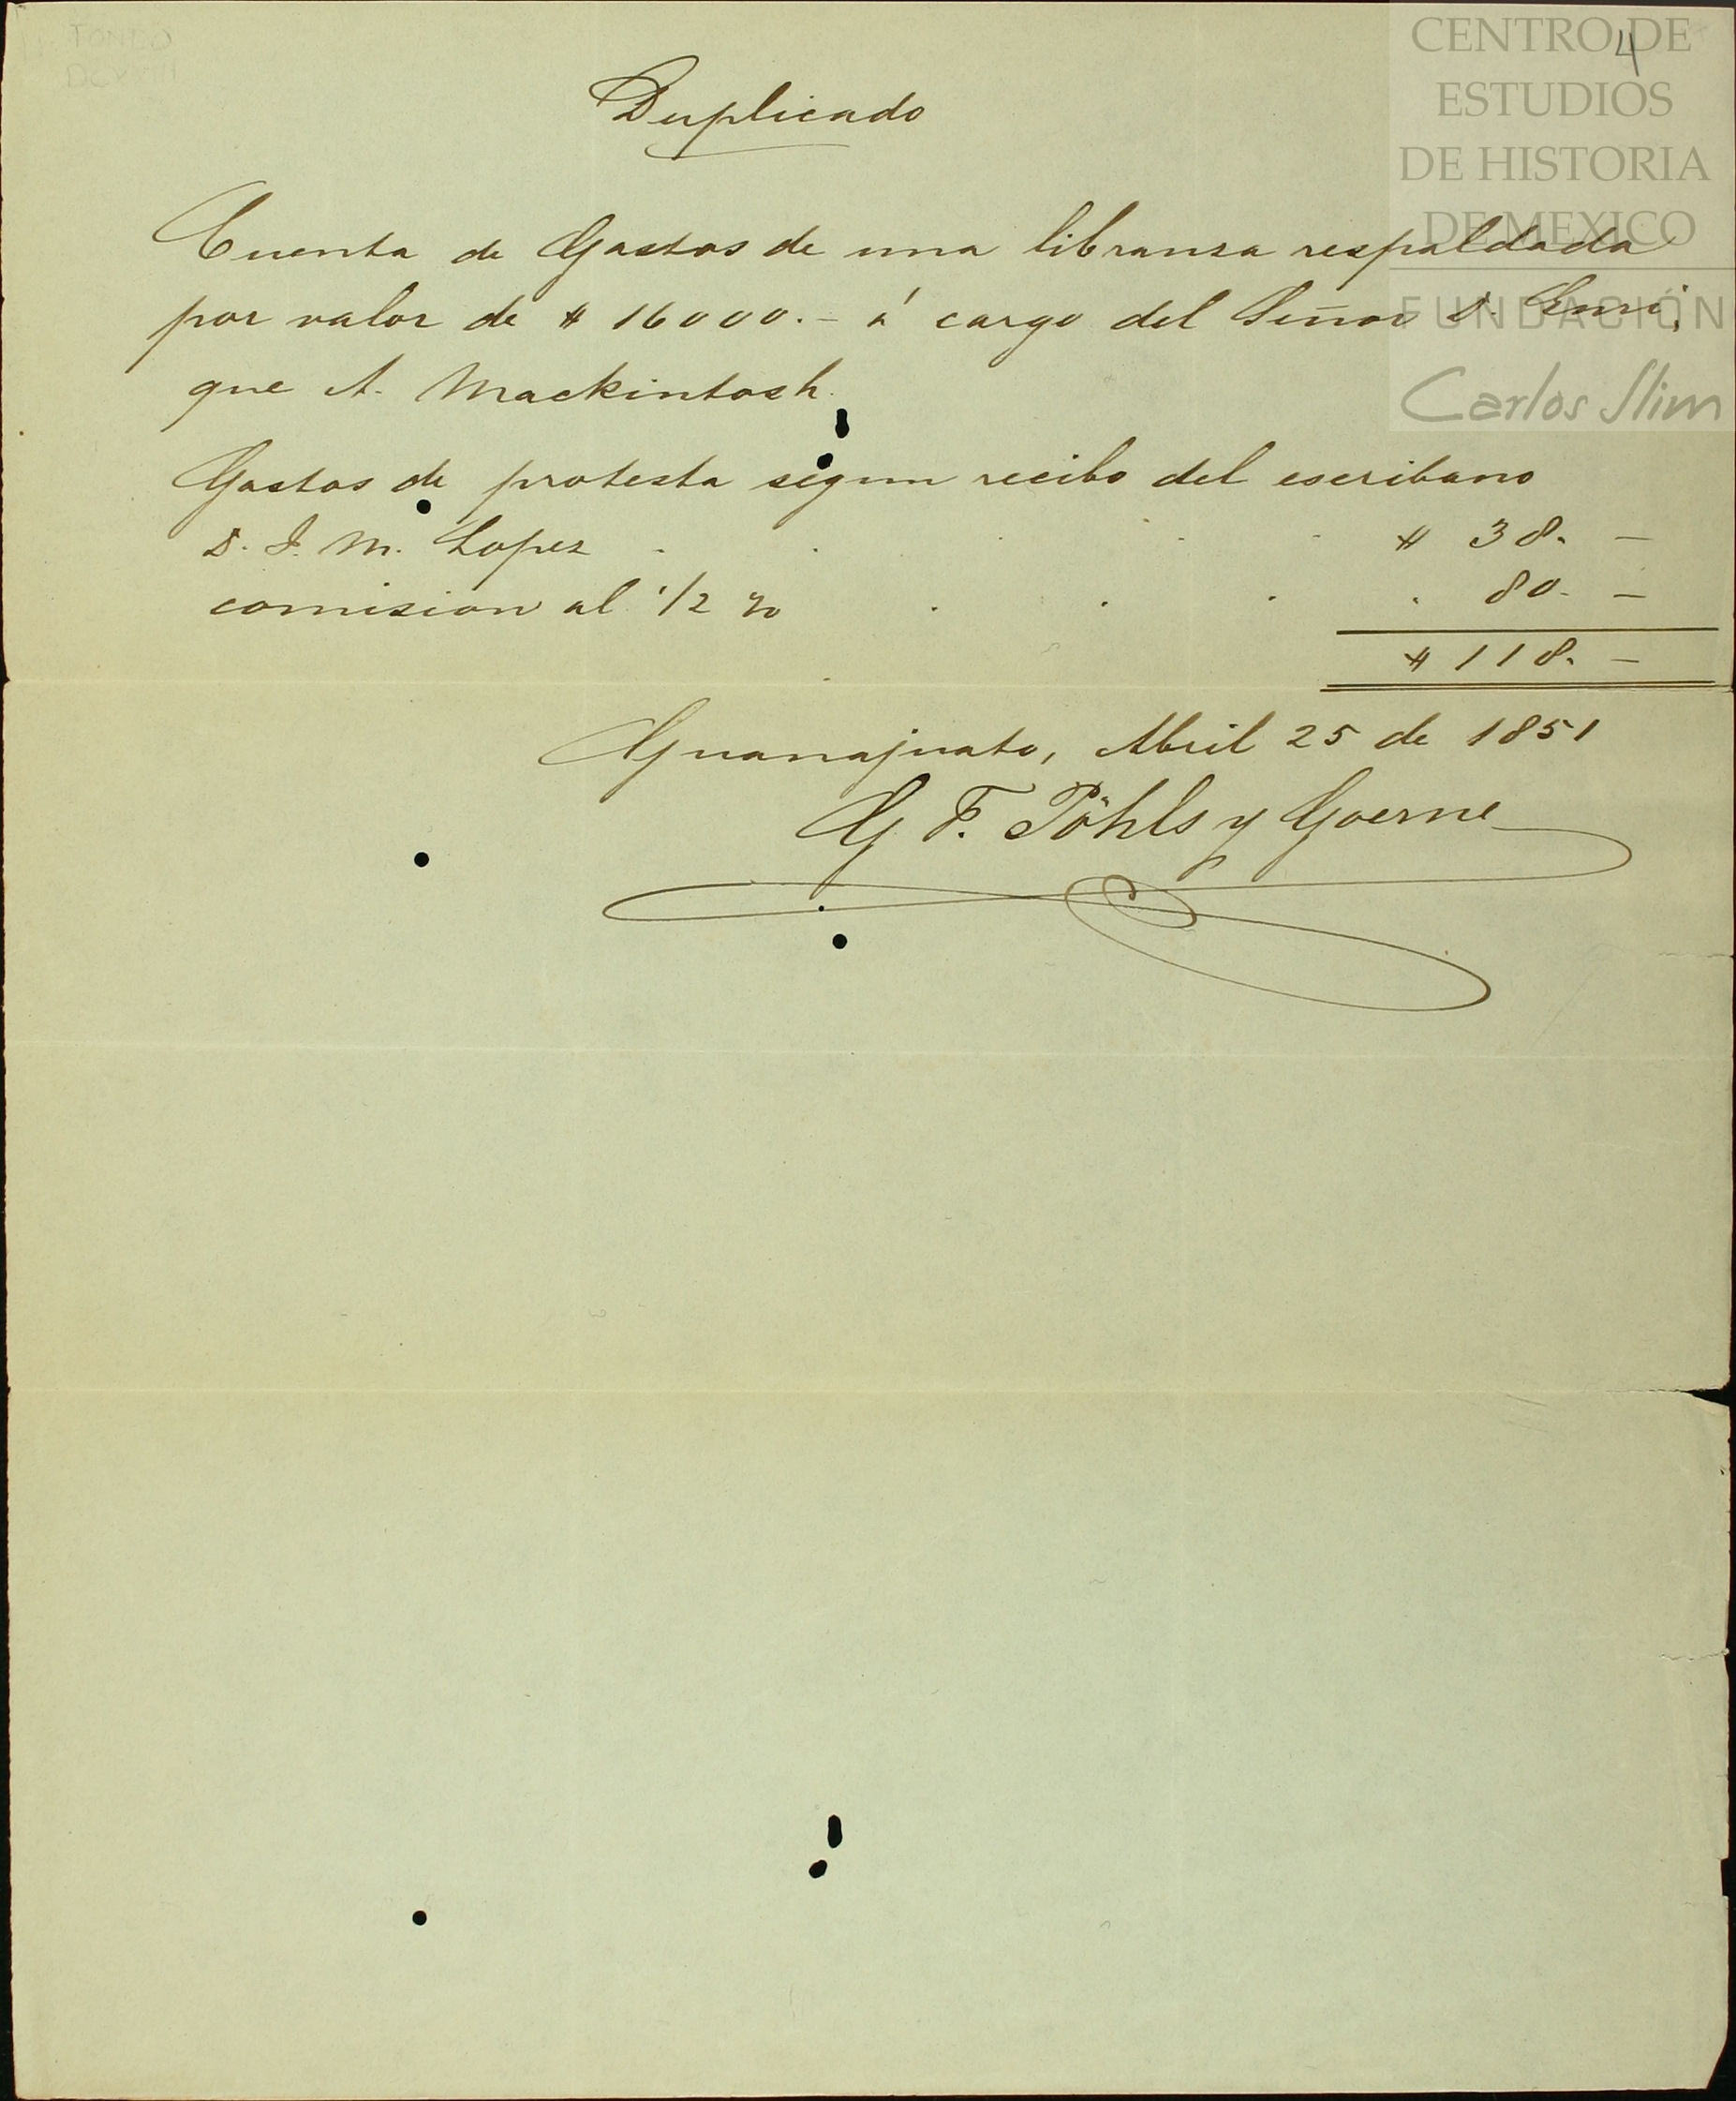 4
CENTRO DE
ESTUDIOS
DE HISTORIA
DE MEXICO
FUNDACIÓN
Carlos Slim
Duplicado
Cuenta de Gastos de una libranza respaldada
por valor de $ 16000.- á cargo del Señor D. Enri-
que A. Mackintosh.
Gastos de protesta segun recibo del escribano
D. J. M. Lopez . . . . . $ 38. —
comision al 1/2 % . . . . 80. —
$ 118. —
Guanajuato, Abril 25 de 1851
G. F. Pöhls y Goerne